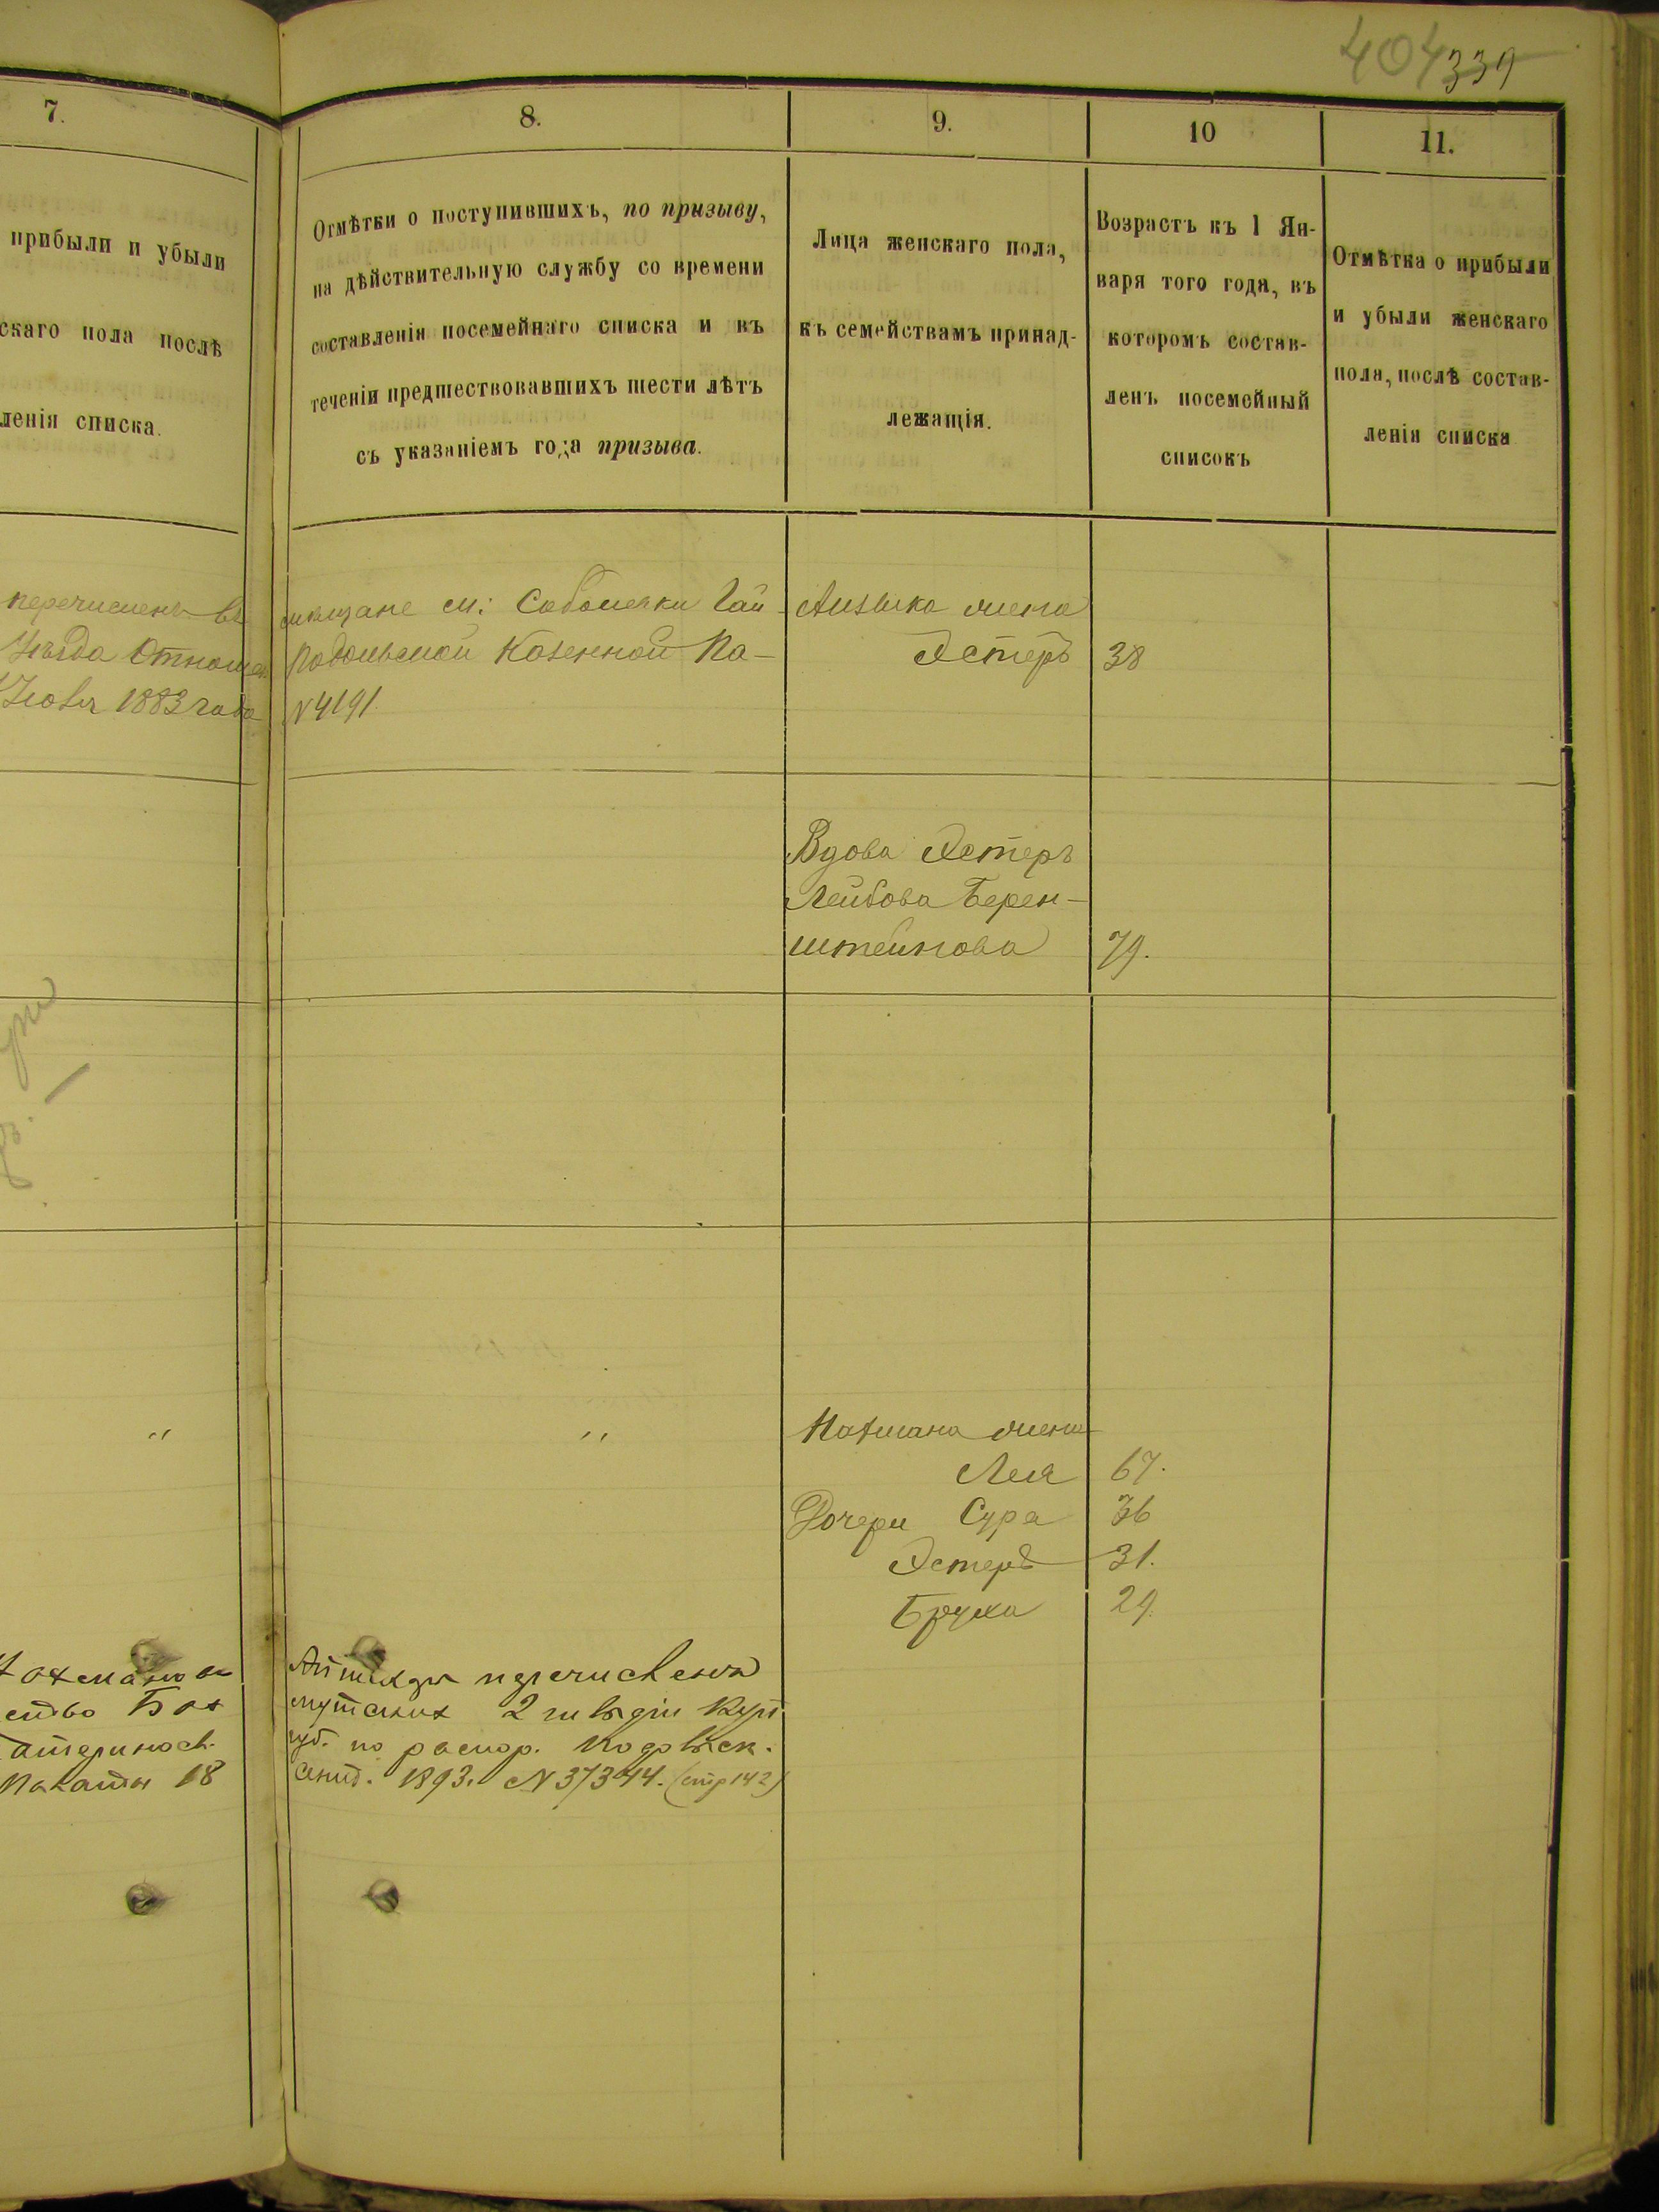 404 339
7.
прибыли и убыли
скаго пола послѣ
ленія списка.
8.
Отмѣтки о поступившихъ, по призыву,
на дѣйствительную службу со времени
составленія посемейнаго списка и въ
теченіи предшествовавшихъ шести лѣтъ
съ указаніемъ года призыва.
9.
Лица женскаго пола,
къ семействамъ принад-
лежащія.
10
Возрастъ къ 1 Ян-
варя того года, въ
которомъ состав-
ленъ посемейный
списокъ
11.
Отмѣтка о прибыли
и убыли женскаго
пола, послѣ состав-
ленія списка
перечисленъ въ мѣщане м: Саболевки Гай-
Уѣзда Отношен. Подольской Казенной Па-
1883 года N 4191
жена
Эстеръ 38
Вдова Эстеръ
Лейбова Берен-
штейнова 79.
" "
Нахмана жена
Лея 67.
Дочери Сура 36
Эстеръ 31.
Бруха 29.
перечислены
ство Бах мутских 2 гильдіи купч.
атеринос. губ. по распор. Подольск.
Палаты 18 Сент. 1893. N 37344. (стр 142)